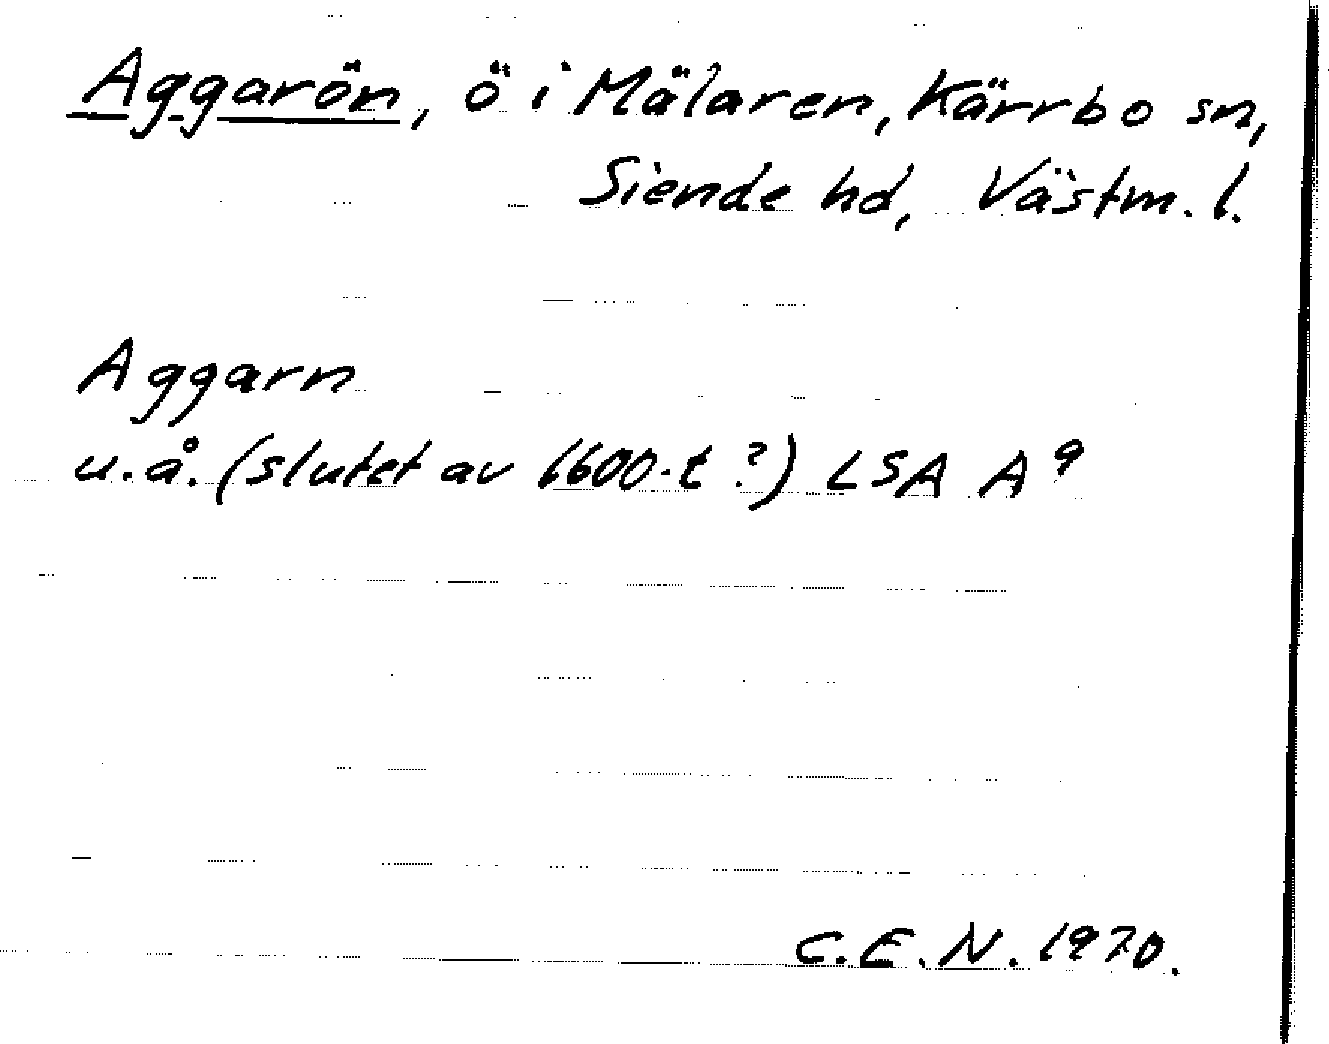 Aggarön, ö i Mälaren, Kärrbo sn,
Siende hd, Västm. l.
Aggarn
u.å. (slutet av 1600-t ?) LSA A⁹
C.E.N. 1970.